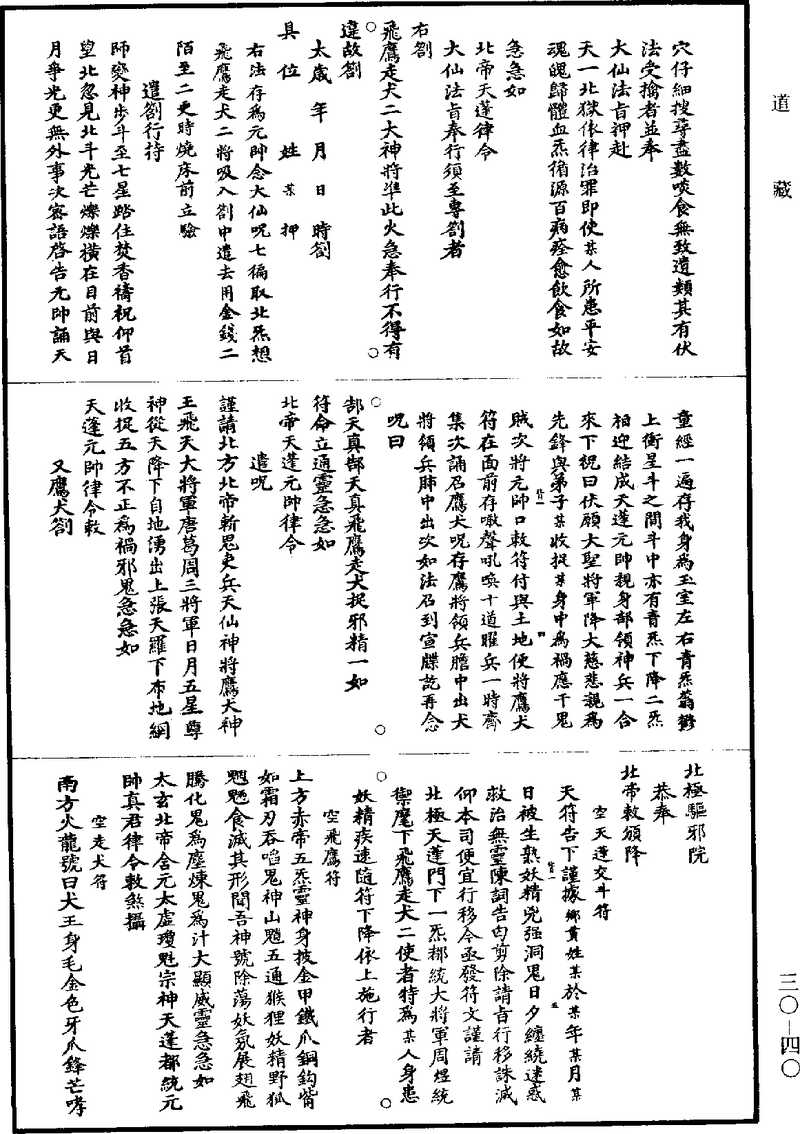 道藏
穴仔細搜尋盡數啖食無致遺類其有伏
法受擒者並奉
大仙法旨押赴
天一北獄依律治罪即使某人所患平安
魂魄歸體血炁循源百病痊愈飲食如故
急急如
北帝天蓬律令
大仙法旨奉行須至專劄者
右劄
飛鷹走犬二大神將準此火急奉行不得有
違故劄
太歲年月日時劄
具位姓某押
右法存為元帥念大仙呪七徧取北炁想
飛鷹走犬二將吸入劄中遣去用金錢二
陌至二更時燒床前立驗
遣劄行持
師變神步斗至七星踏住焚香禱祝仰首
望北忽見北斗光芒爍爍橫在目前與日
月爭光更無外事次密語啓告元帥誦天
童經一遍存我身為玉室左右青炁蓊鬱
上衝星斗之間斗中亦有青炁下降二炁
相迎結成天蓬元帥親身部領神兵一合
來下祝曰伏願大聖將軍降大慈悲親為
先鋒與弟子某收捉某身中為禍應干鬼
賊次將元帥口敕符付與土地便將鷹犬
符在面前存噉聲吼喚十道躍兵一時齊
集次誦召鷹犬呪存鷹將領兵膽中出犬
將領兵肺中出次如法召到宣牒訖再念
呪曰
郜天真郜天真飛鷹走犬捉邪精一如
符命立通靈急急如
北帝天蓬元帥律令
遣呪
謹請北方北帝斬鬼吏兵天仙神將鷹犬神
王飛天大將軍唐葛周三將軍日月五星尊
神從天降下自地湧出上張天羅下布地網
收捉五方不正為禍邪鬼急急如
天蓬元帥律令敕
又鷹犬劄
北極驅邪院
恭奉
北帝敕頒降
空天蓬交斗符
天符告下謹據鄉貫姓某於某年某月某
日被生熟妖精兇強洞鬼日夕纏繞迷惑
救治無靈陳詞告匄剪除請旨行移誅滅
仰本司便宜行移今亟發符文謹請
北極天蓬門下一炁都統大將軍周煜統
禦麾下飛鷹走犬二使者特為某人身患
妖精疾速隨符下降依上施行者
空飛鷹符
上方赤帝五炁靈神身披金甲鐵爪銅鈎觜
如霜刃吞啗鬼神山魈五通猴狸妖精野狐
魍魎食滅其形聞吾神號除蕩妖氛展翅飛
騰化鬼為塵煉鬼為汁大顯威靈急急如
太玄北帝金元太虛瓊魁宗神天蓬都統元
帥真君律令敕煞攝
空走犬符
南方火龍號曰犬王身毛金色牙爪鋒芒哮
三〇—四〇